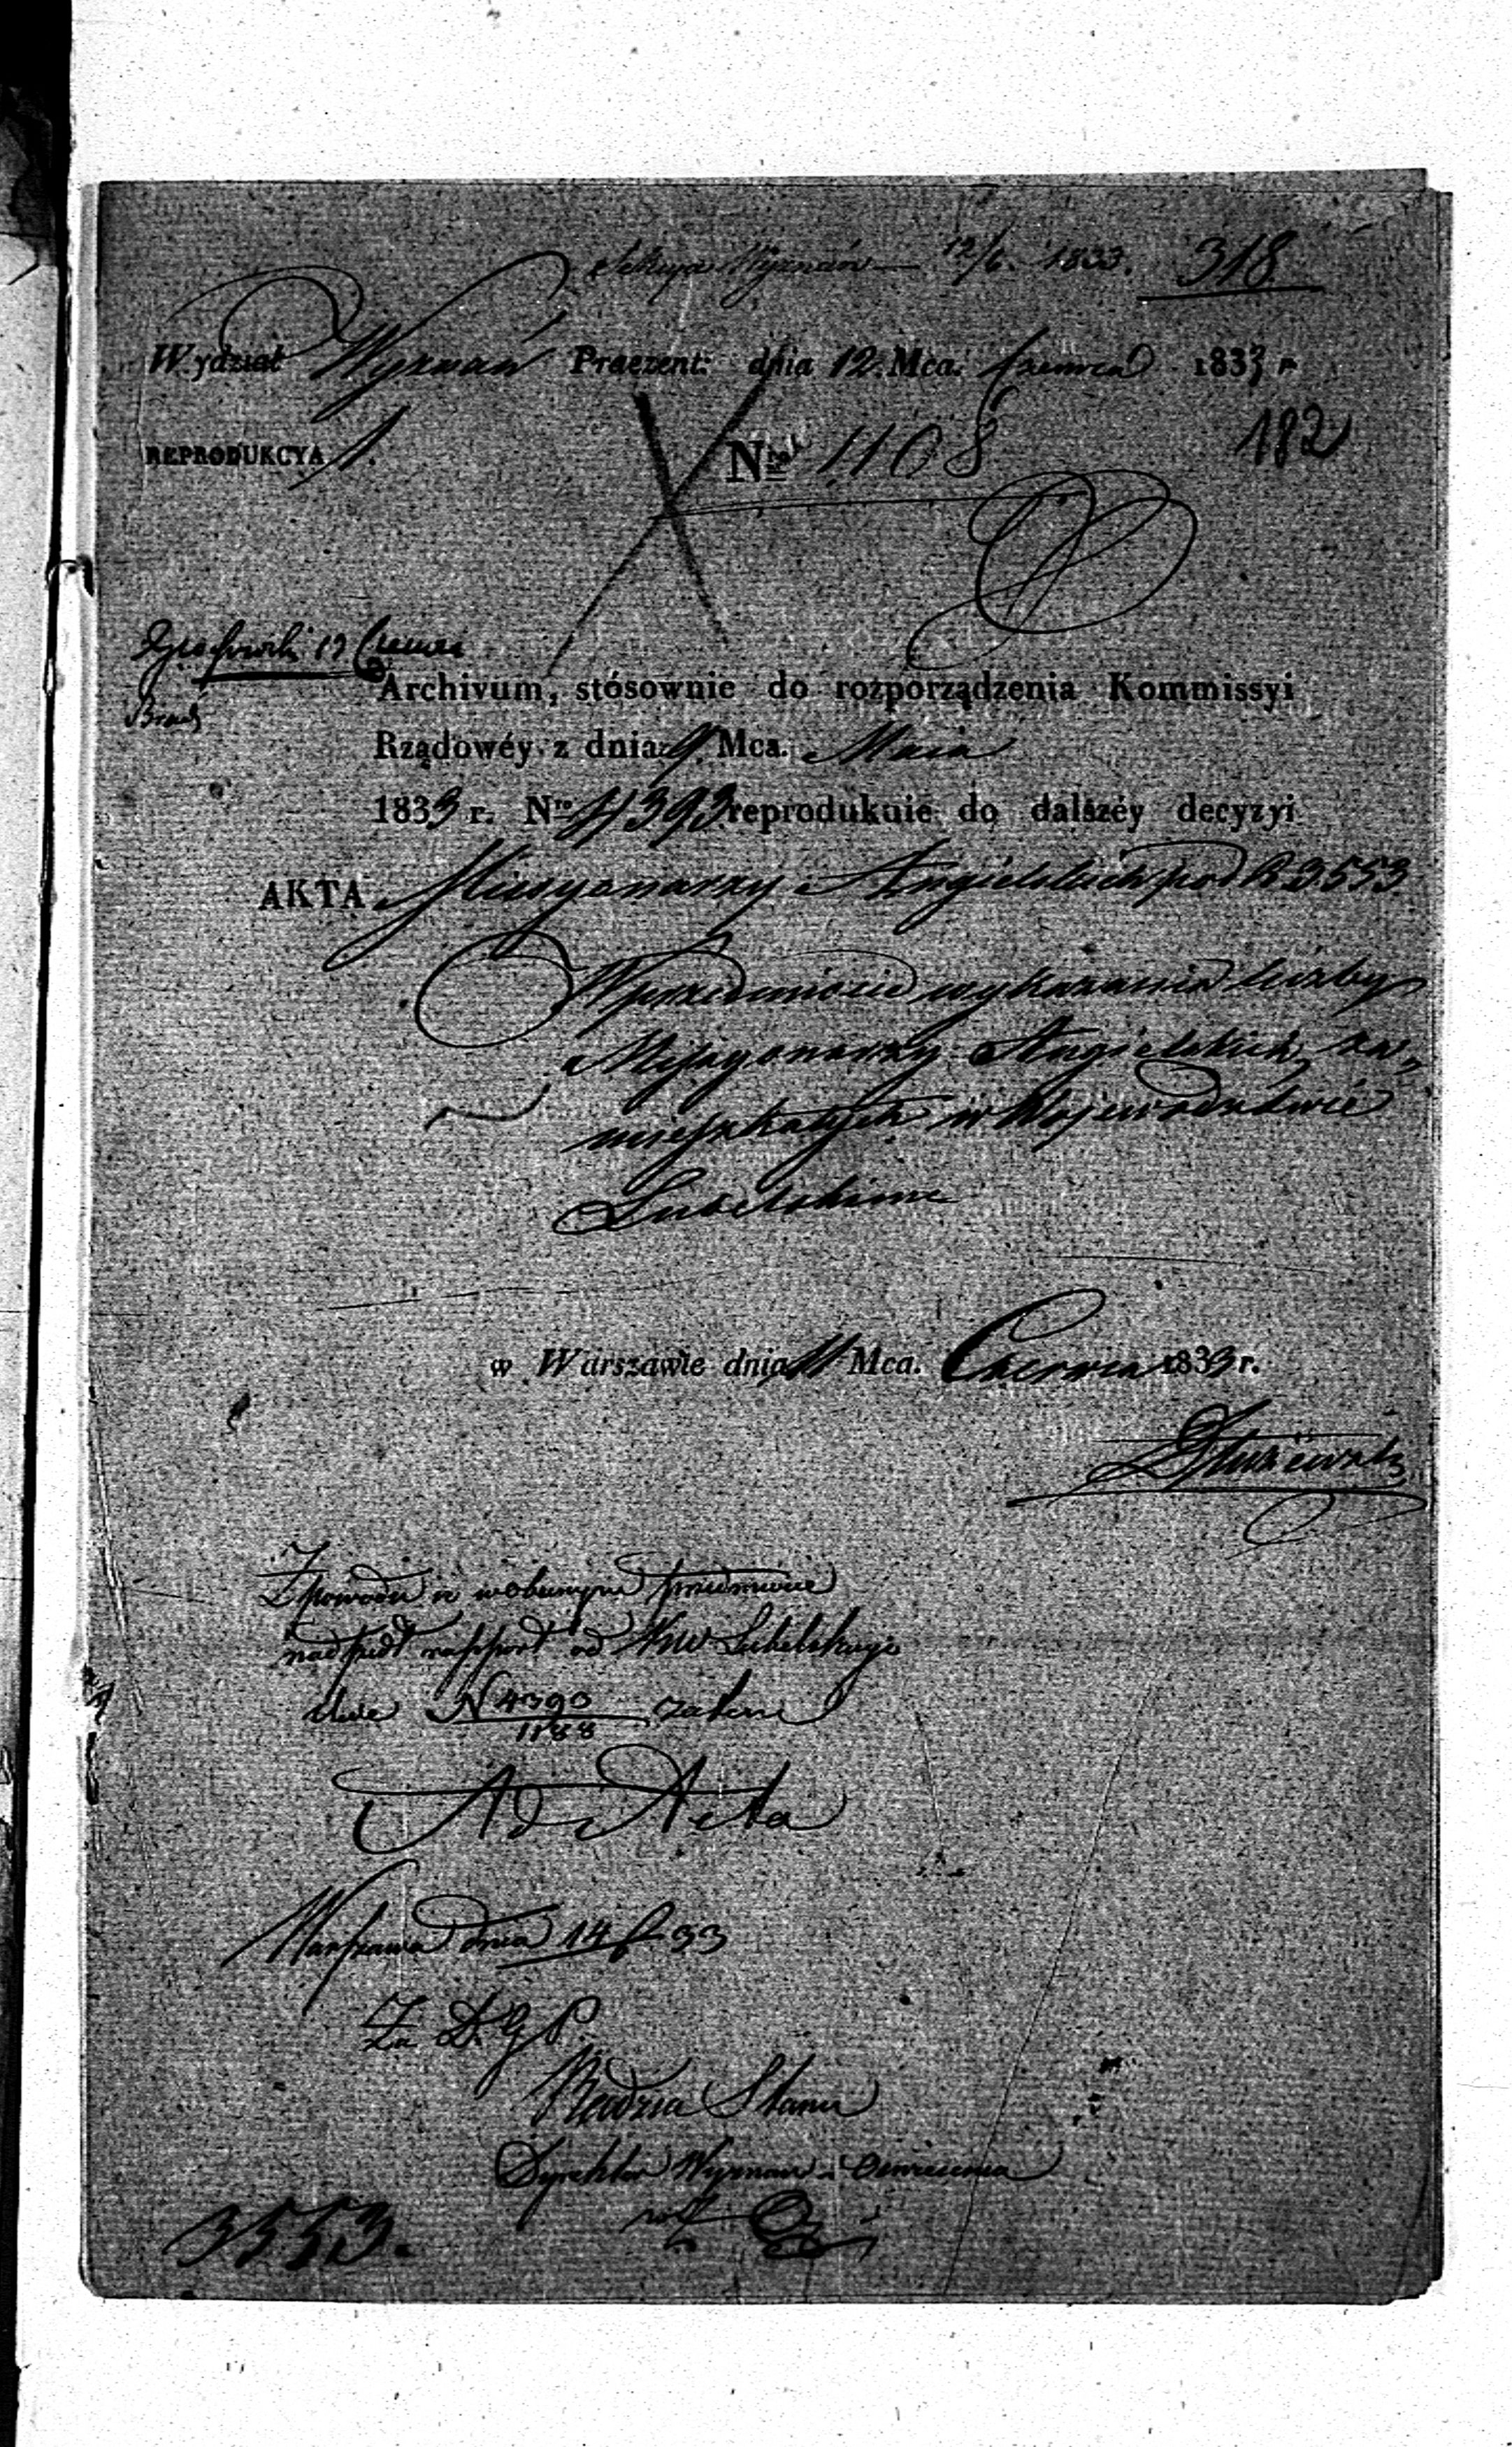 Sekcya Wyznań 12/6. 1833. 318
Wydział Wyznań Praezent: dnia 12. Mca. Czerwca 1833 r.
182
REPRODUKCYA 1. Nro 1108
13 Czerwca
Archivum, stósownie do rozporządzenia Kommissyi
Rządowéy z dnia 9 Mca. Maia
1833 r. Nro 4393 reprodukuie do dalszéy decyzyi
AKTA Missyonarzy Angielskich pod R 3553
W przedmiocie wykazania liczby
Missyonarzy Angielskich, za-
mieszkałych w Wojewodztwie
Lubelskiem
w Warszawie dnia 11 Mca. Czerwca 1833 r.
Z powodu iż w przedmiocie
nadszedł rapport od KW Lubelskiego
N 4390/1188 zatem
Ad Acta
Warszawa dnia 14/6 33
Za D. G. P.
Radzca Stanu
Dyrektor Wyznan i Oswiecenia
3553.